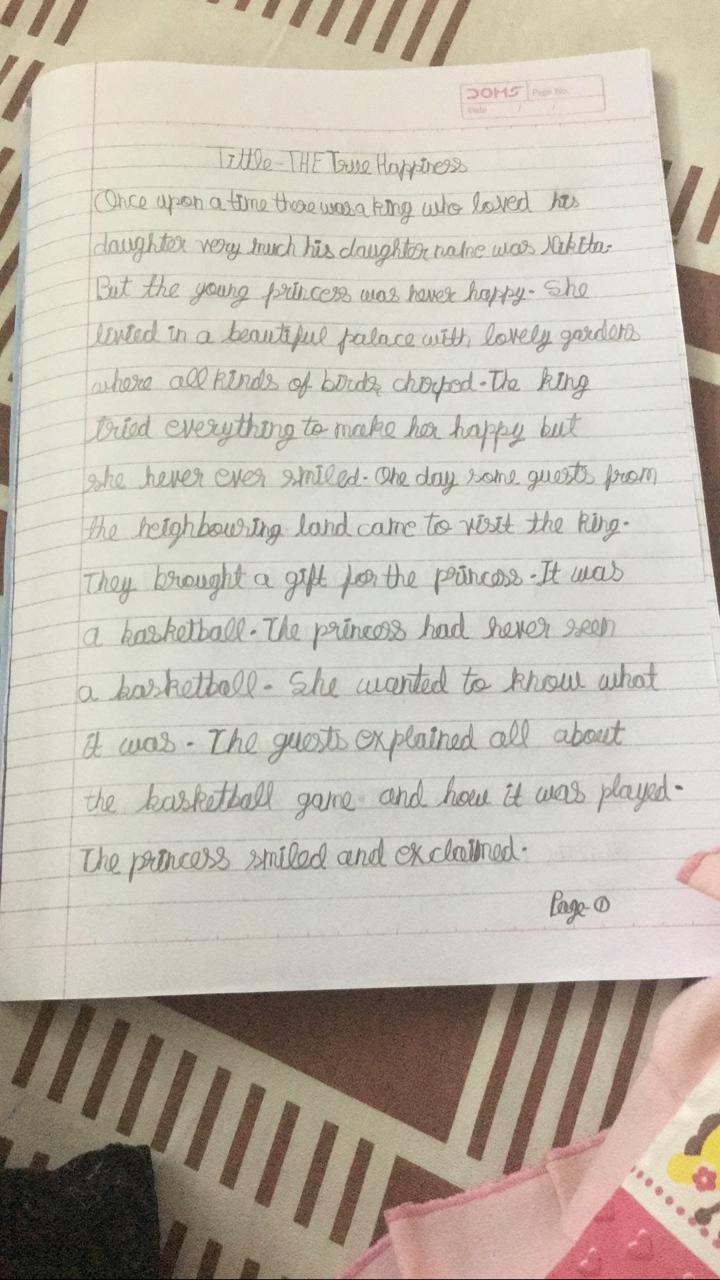 DOMS Page No.
Date / /
Tittle-THE True Happiness
Once upon a time there was a king who loved his
daughter very much his daughter name was Nikita.
But the young princess was never happy. She
livied in a beautiful palace with lovely gardens
where all kinds of birds chirped. The king
tried everything to make her happy but
she never ever smiled. One day some guests from
the neighbouring land came to visit the king.
They brought a gift for the princess. It was
a basketball. The princess had never seen
a basketball. She wanted to know what
it was. The guests explained all about
the basketball game and how it was played.
The princess smiled and exclaimed.
Page-①